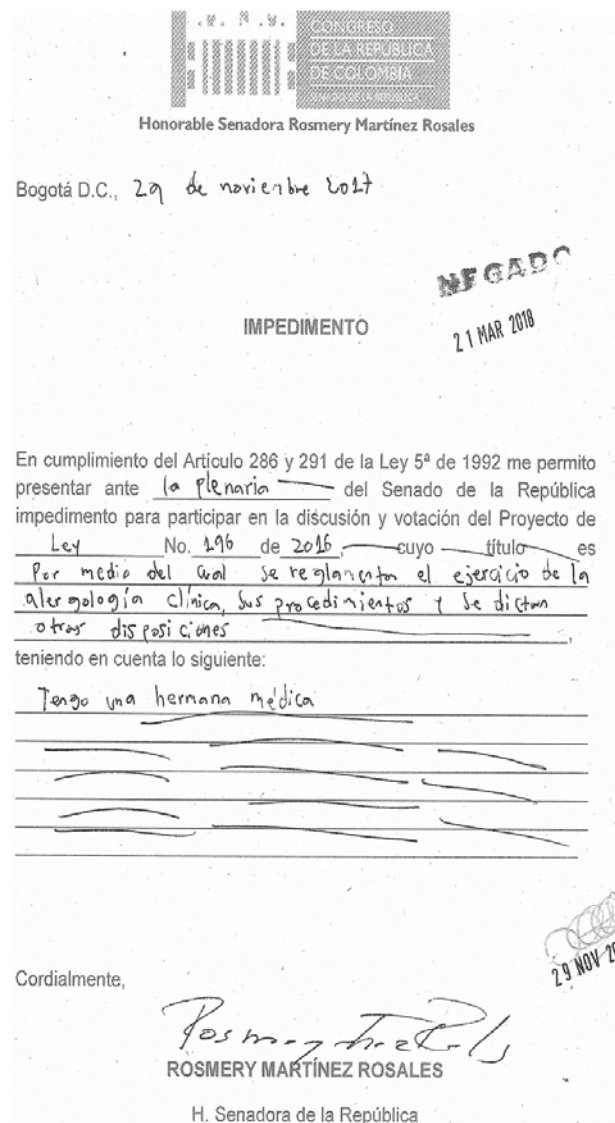 CONGRESO
DE LA REPÚBLICA
DE COLOMBIA
Honorable Senadora Rosmery Martínez Rosales
Bogotá D.C., 29 de noviembre 2017
NEGADO
21 MAR 2018
IMPEDIMENTO
En cumplimiento del Artículo 286 y 291 de la Ley 5ª de 1992 me permito
presentar ante la plenaria del Senado de la República
impedimento para participar en la discusión y votación del Proyecto de
Ley No. 196 de 2016, cuyo título es
Por medio del cual se reglamenta el ejercicio de la
alergología clínica, sus procedimientos y se dictan
otras disposiciones,
teniendo en cuenta lo siguiente:
Tengo una hermana médica
29 NOV
Cordialmente,
ROSMERY MARTÍNEZ ROSALES
H. Senadora de la República